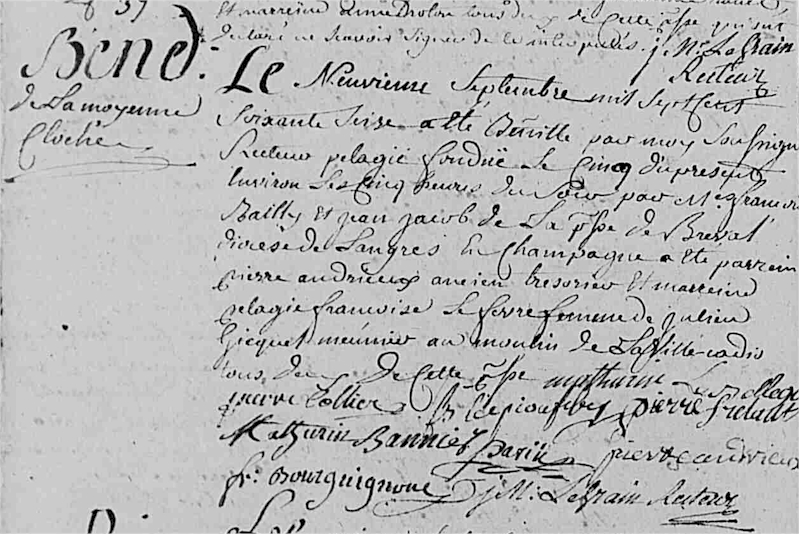 Et marreine
declaré ne scavoir signer de ce interpellés. j. M. Le Frain
Recteur
Béned:
de La moyenne
Cloche
Le Neuvieme Septembre mil Sept cent
Soixante Seize a été Bénitte par moy Soussigné
Recteur pelagie fonduë Le Cinq du present
Environ Les Cinq heures du Soir par Mes francois
Bailly Et jean jacob de La psse de Breval
diocese de Langres En Champagne a été parrein
pierre andrieux ancien tresorier Et marreine
pelagie francoise Le fevre femme de julien
Gicquel meunier au moulin de La Ville cadio
tous deux de Cette psse mathurin
pierre Collier pierre
Mathurin Bannier parin pierre andrieux
fr. Bourguignone j. M. Le Frain Recteur